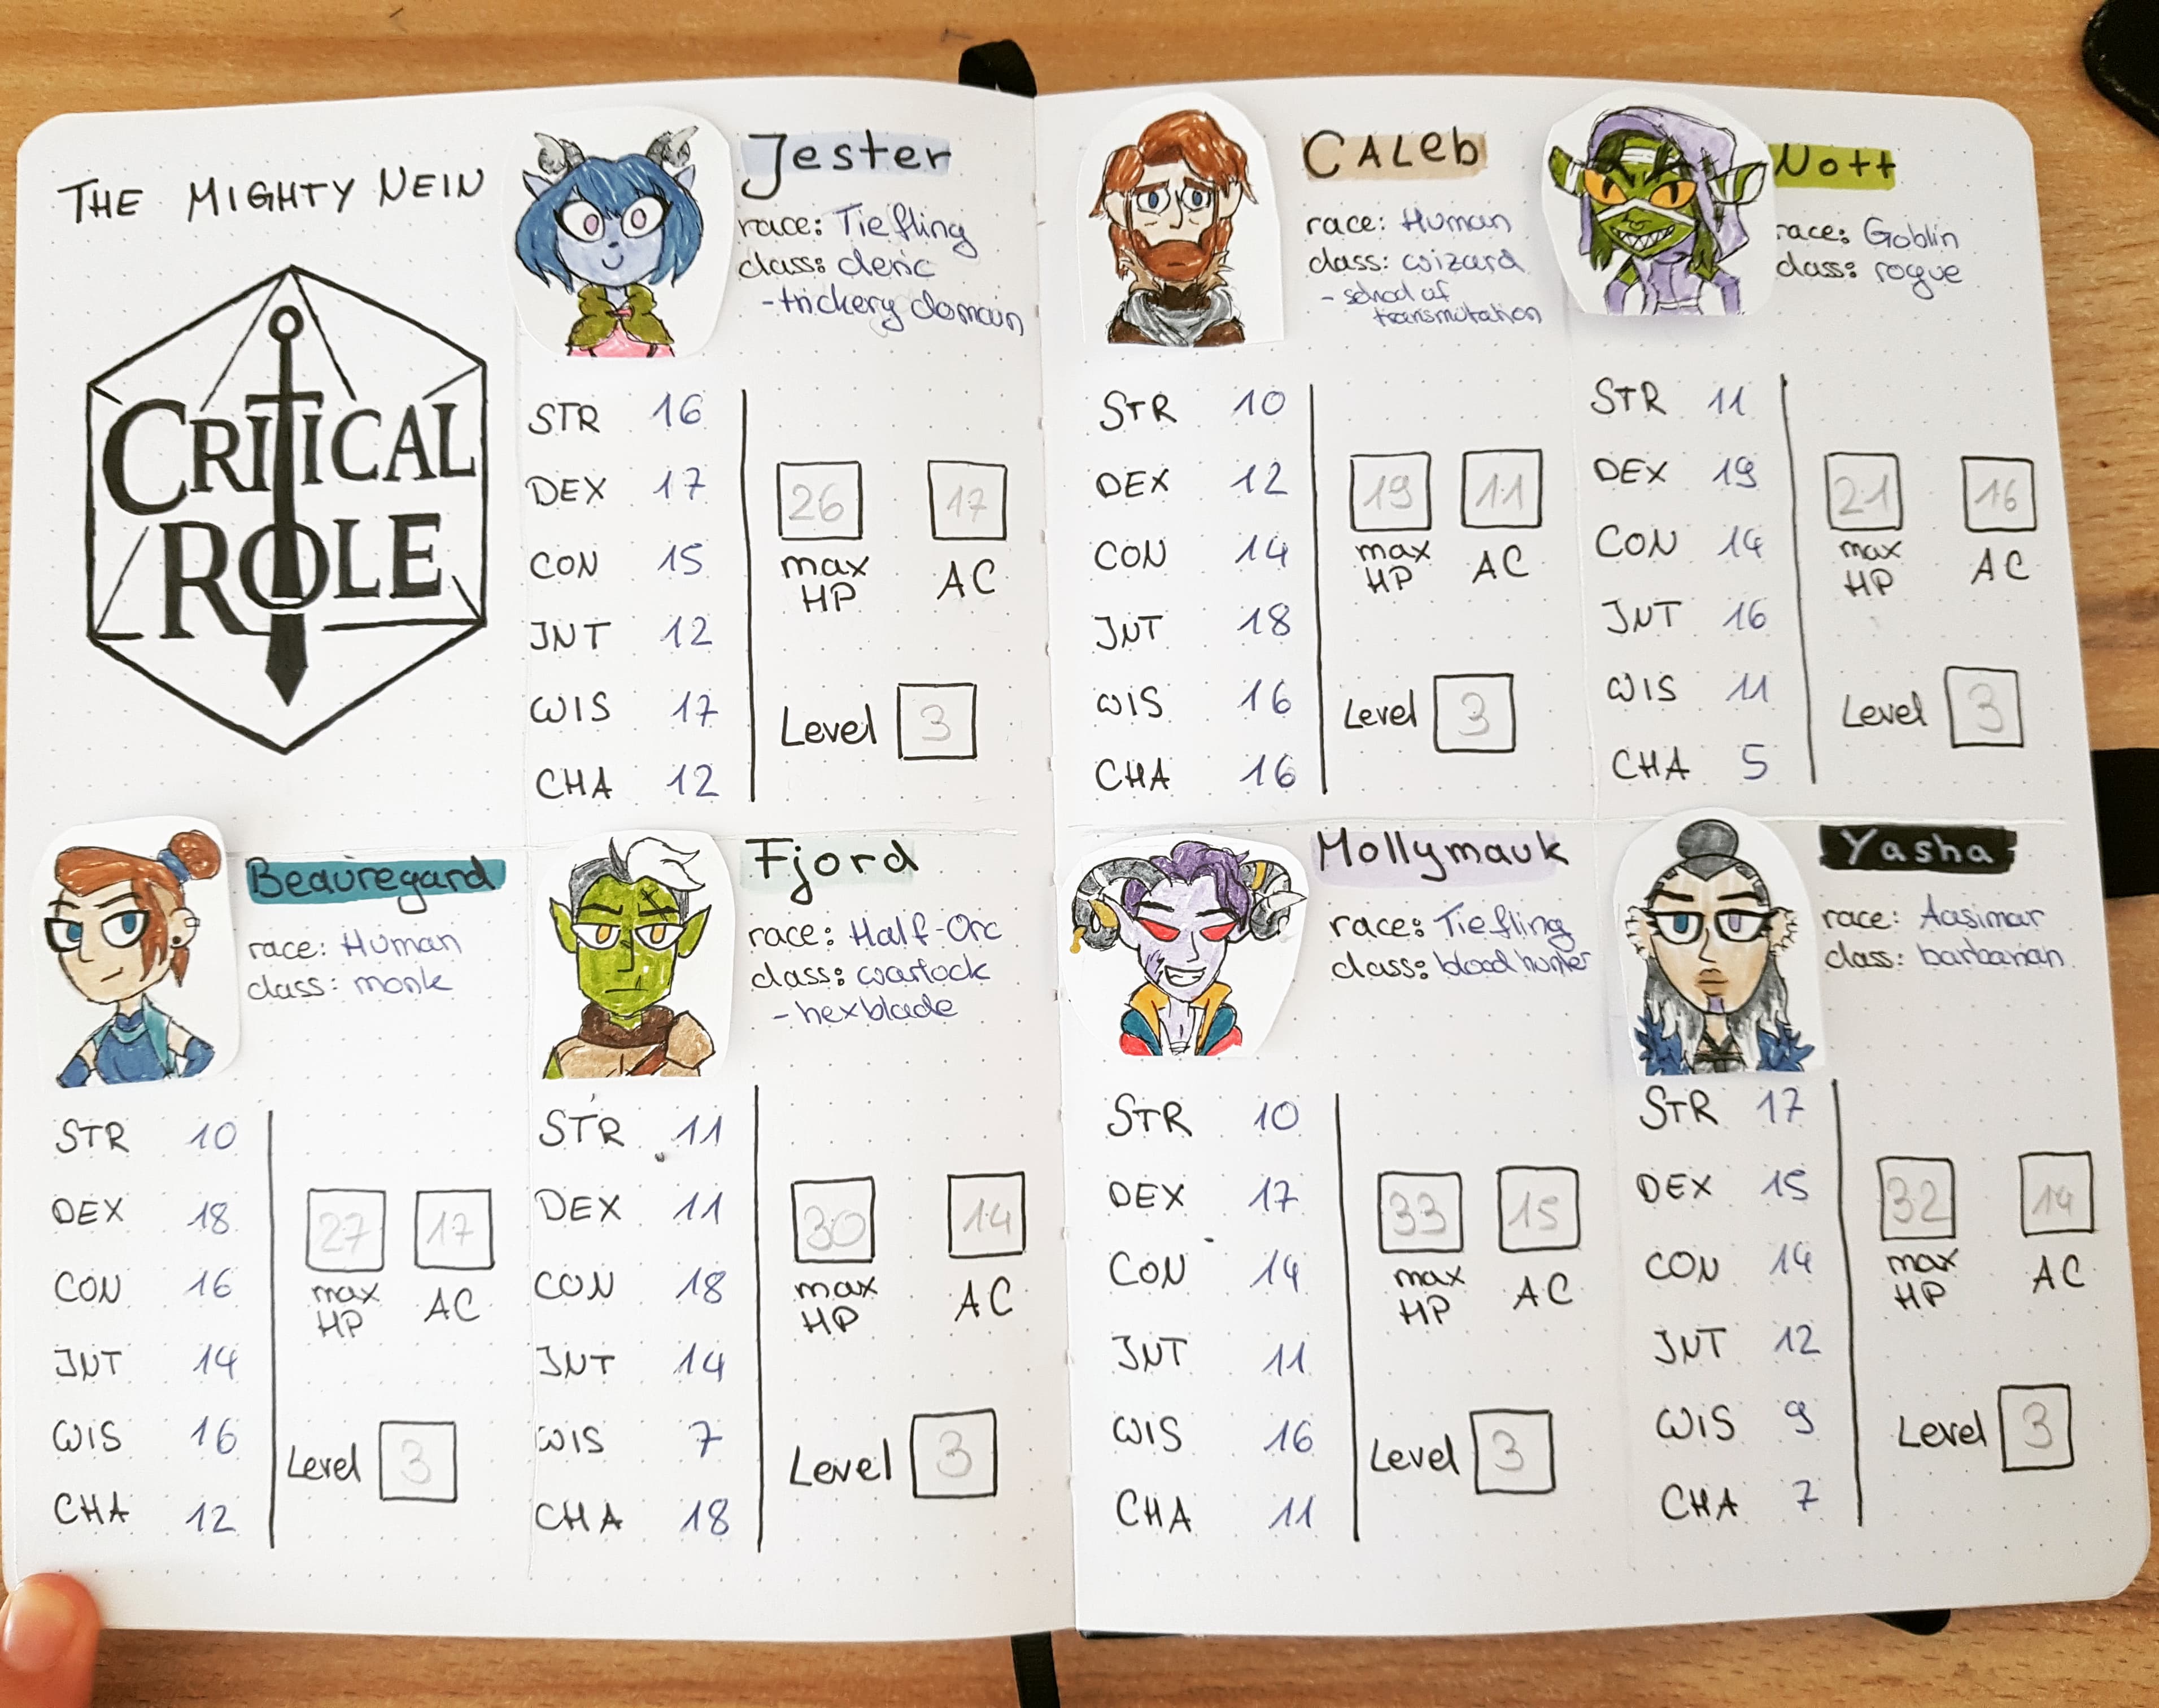 THE MIGHTY NEIN
CRITICAL
ROLE
Jester
race: Tiefling
class: cleric
- trickery domain
STR 16
DEX 17
CON 15
INT 12
WIS 17
CHA 12
26 17
max HP AC
Level 3
Caleb
race: Human
class: wizard
- school of
transmutation
STR 10
DEX 12
CON 14
INT 18
WIS 16
CHA 16
19 11
max HP AC
Level 3
Nott
race: Goblin
class: rogue
STR 11
DEX 19
CON 14
INT 16
WIS 11
CHA 5
21 16
max HP AC
Level 3
Beauregard
race: Human
class: monk
STR 10
DEX 18
CON 16
INT 14
WIS 16
CHA 12
27 17
max HP AC
Level 3
Fjord
race: Half-Orc
class: warlock
- hexblade
STR 11
DEX 11
CON 18
INT 14
WIS 7
CHA 18
30 14
max HP AC
Level 3
Mollymauk
race: Tiefling
class: blood hunter
STR 10
DEX 17
CON 14
INT 11
WIS 16
CHA 11
33 15
max HP AC
Level 3
Yasha
race: Aasimar
class: barbarian
STR 17
DEX 15
CON 14
INT 12
WIS 9
CHA 7
32 14
max HP AC
Level 3